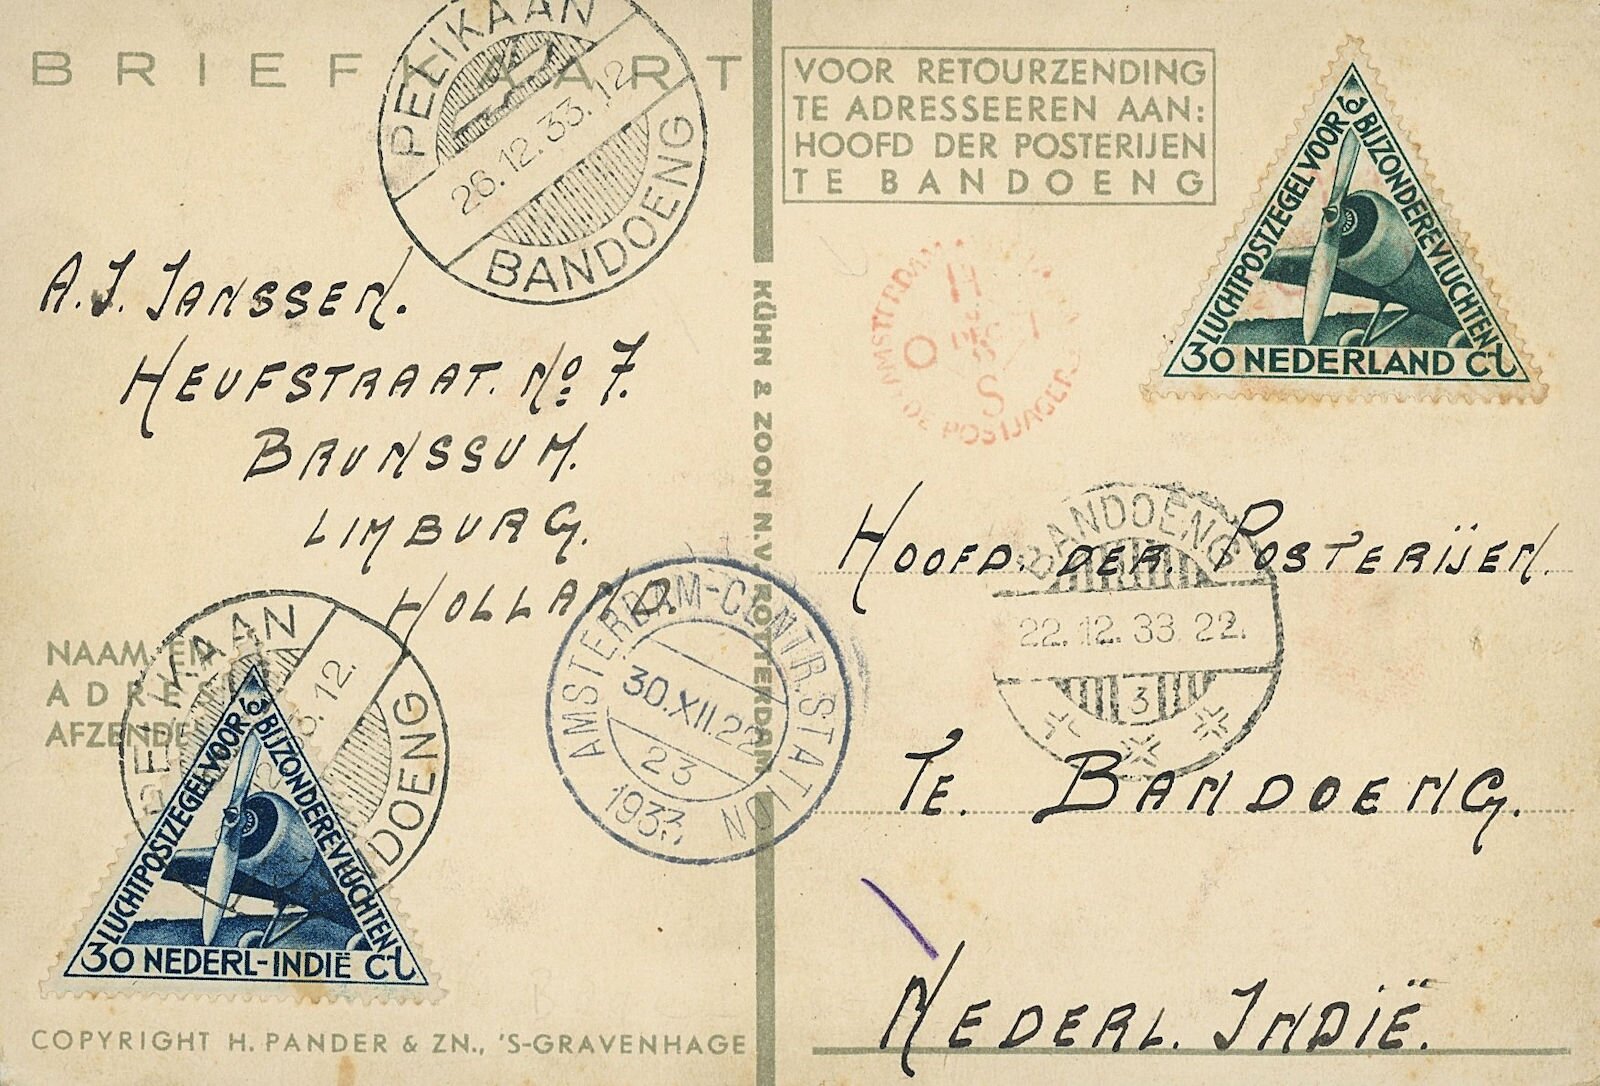 BRIEFKAART
PELIKAAN
26.12.33.12
BANDOENG
VOOR RETOURZENDING
TE ADRESSEEREN AAN:
HOOFD DER POSTERIJEN
TE BANDOENG
LUCHTPOSTZEGEL VOOR BIJZONDERE VLUCHTEN
30 NEDERLAND CT
A.J. JANSSEN.
HEUFSTRAAT. No 7.
BRUNSSUM.
LIMBURG.
HOLLAND.
KÜHN & ZOON N.V. ROTTERDAM
AMSTERDAM
DE POSTJAGER
HOOFD. DER. POSTERIJEN.
TE. BANDOENG.
NEDERL. INDIË.
BANDOENG
22.12.33.22.
3
AMSTERDAM-CENTR.STATION
30.XII.22
23
1933
NAAM EN
ADRES
AFZENDE
PELIKAAN
12.
DOENG
LUCHTPOSTZEGEL VOOR BIJZONDERE VLUCHTEN
30 NEDERL-INDIË CT
COPYRIGHT H. PANDER & ZN., 'S-GRAVENHAGE